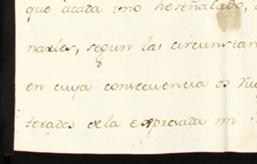 que àcada uno he señalado,
narles, segun las circunstan
en cuya consecuencia os
terados dela expresada mi